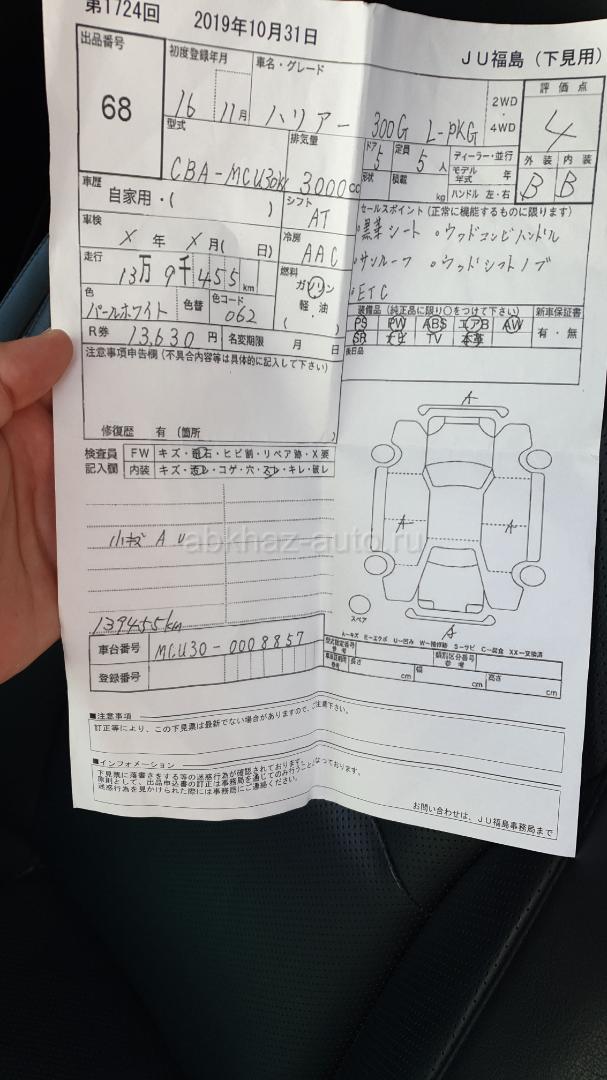 第1724回 2019年10月31日
JU福島 (下見用)
出品番号
68
初度登録年月
16 11月
車名・グレード
ハリアー 300G L-PKG
2WD
・
4WD
評価点
4
外装 内装
B B
型式
CBA-MCU30W
排気量
3000cc
ドア
5
定員
5人
ディーラー・並行
形状
積載
kg
モデル年式 年
ハンドル 左・右
車歴
自家用・( )
シフト
AT
セールスポイント (正常に機能するものに限ります)
・黒革シート ・ウッドコンビハンドル
・サンルーフ ・ウッドシフトノブ
・ETC
車検
X年 X月( 日)
冷房
AAC
走行
13万9千455km
燃料
ガソリン
軽・油
( )
色
パールホワイト
色替
色コード
062
装備品 (純正品に限り○をつけて下さい)
PS PW ABS エアB AW
SR ナビ TV 本革
新車保証書
有・無
後日品
R券 13,630円 名変期限 月 日
注意事項申告欄 (不具合内容等は具体的に記入して下さい)
修復歴 有 (箇所 )
検査員
記入欄
FW キズ・飛石・ヒビ割・リペア跡・X要
内装 キズ・汚レ・コゲ・穴・スレ・キレ・破レ
小キズ A U
139455km
A
A
A
A
スペア
A-キズ E-エクボ U-凹み W-補修跡 S-サビ C-腐食 XX-交換済
車台番号 MCU30-0008857
登録番号
型式指定番号
参考
類別区分番号
参考
長さ cm
幅 cm
高さ cm
■注意事項
訂正等により、この下見票は最新でない場合がありますので、ご注意下さい。
■インフォメーション
下見票に落書きをする等の迷惑行為が確認されております。
原則として、出品申込書の訂正は事務局を通じてのみ行うこととなっております。
迷惑行為を見かけられた際には事務局にご連絡ください。
お問い合わせは、JU福島事務局まで
abkhaz-auto.ru